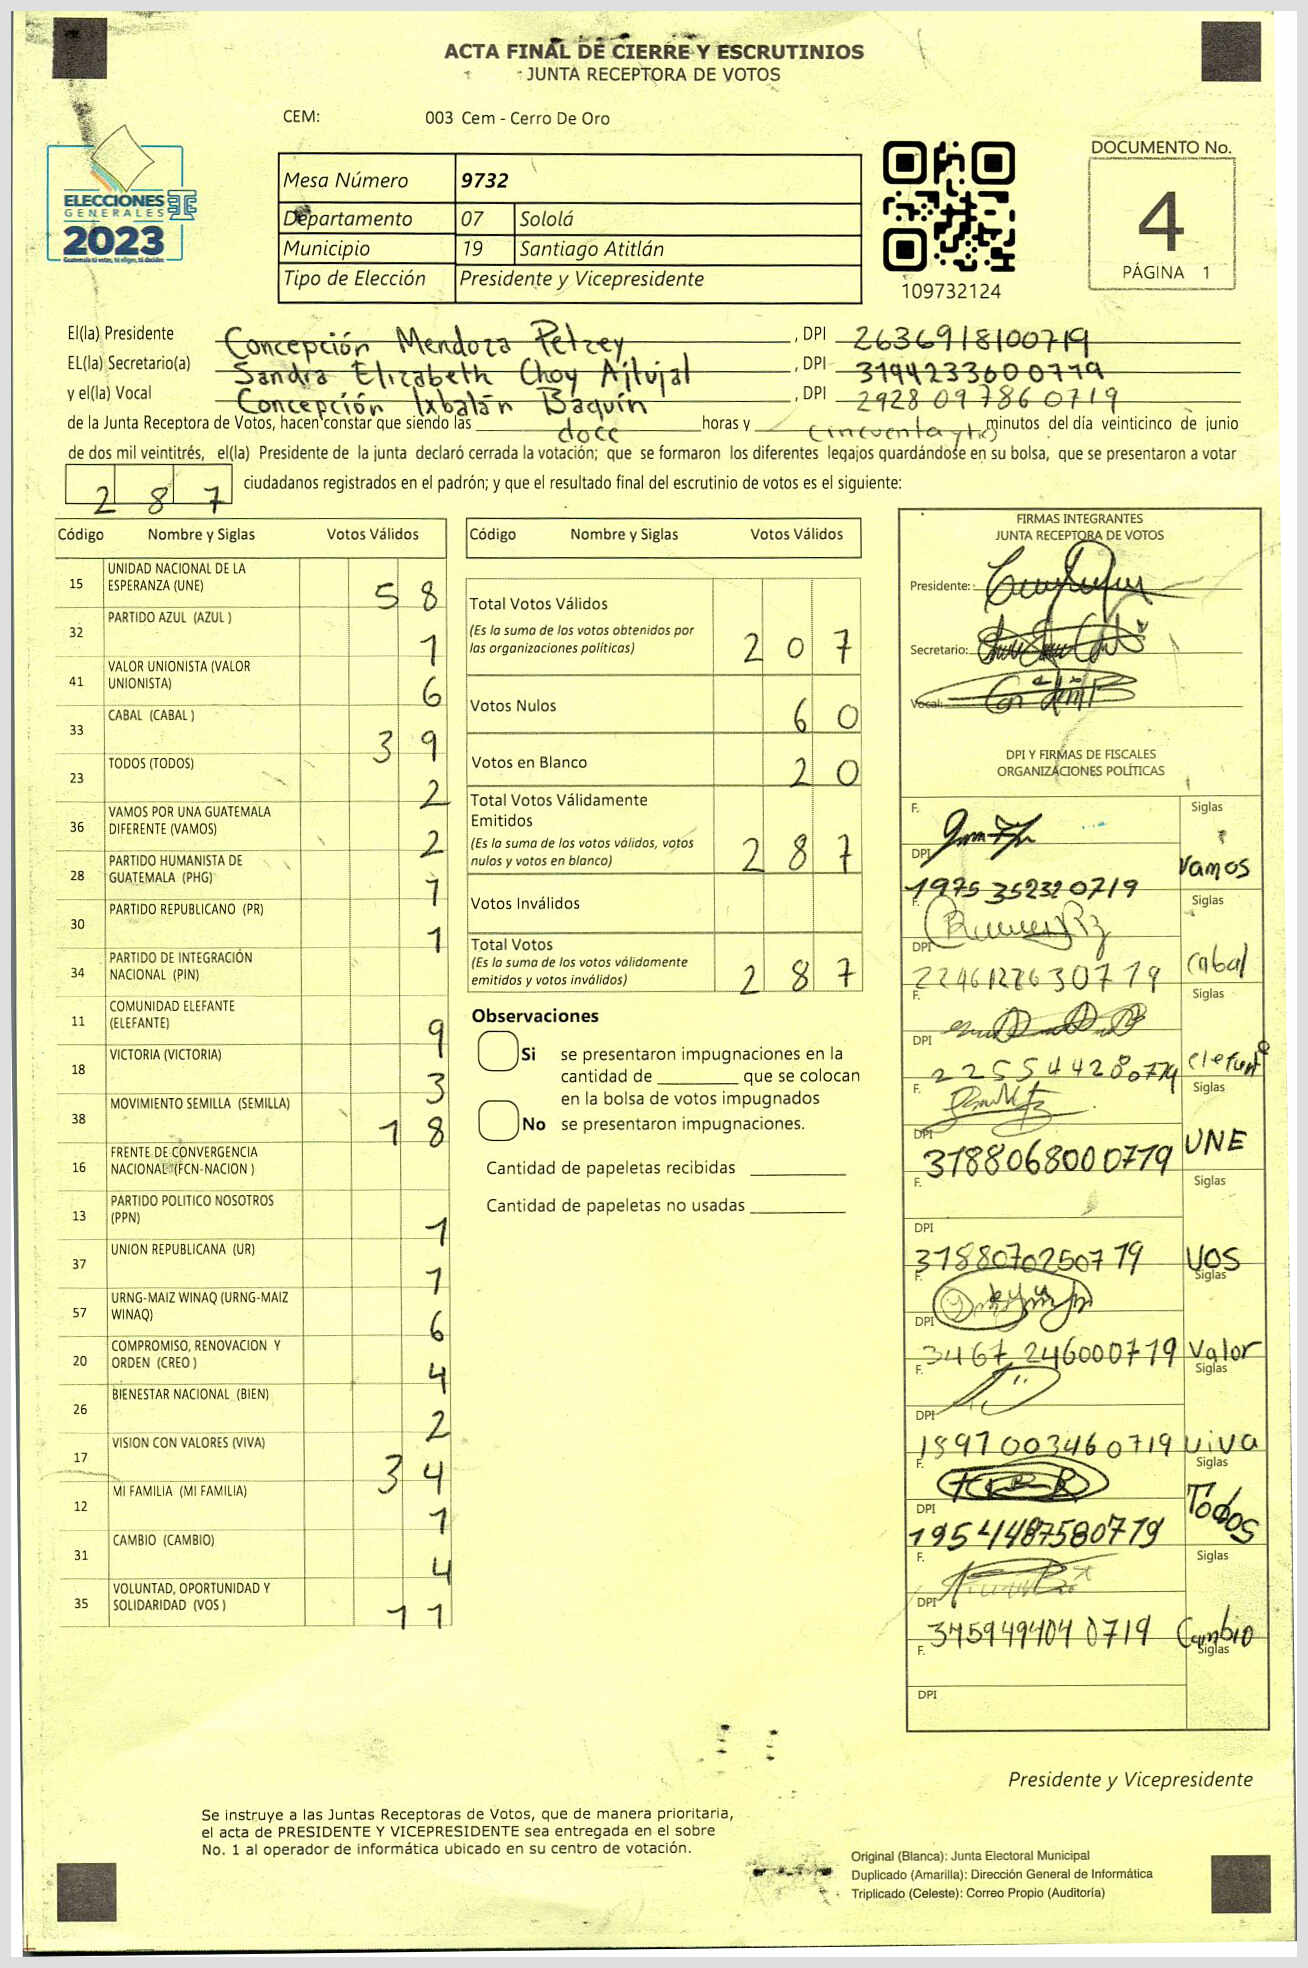 ACTA FINAL DE CIERRE Y ESCRUTINIOS
JUNTA RECEPTORA DE VOTOS
CEM: 003 Cem - Cerro De Oro
ELECCIONES
GENERALES
2023
Guatemala tú votas, tú eliges, tú decides
Mesa Número 9732
Departamento 07 Sololá
Municipio 19 Santiago Atitlán
Tipo de Elección Presidente y Vicepresidente
109732124
DOCUMENTO No.
4
PÁGINA 1
El(la) Presidente Concepción Mendoza Petzey, DPI 2636918100719
EL(la) Secretario(a) Sandra Elizabeth Choy Ajtujal, DPI 3194233600719
y el(la) Vocal Concepción Ixbalán Baquín, DPI 2928097860719
de la Junta Receptora de Votos, hacen constar que siendo las doce horas y minutos del día veinticinco de junio
de dos mil veintitrés, el(la) Presidente de la junta declaró cerrada la votación; que se formaron los diferentes legajos guardándose en su bolsa, que se presentaron a votar
287 ciudadanos registrados en el padrón; y que el resultado final del escrutinio de votos es el siguiente:
Código Nombre y Siglas Votos Válidos
15 UNIDAD NACIONAL DE LA ESPERANZA (UNE) 58
32 PARTIDO AZUL (AZUL ) 1
41 VALOR UNIONISTA (VALOR UNIONISTA) 6
33 CABAL (CABAL ) 39
23 TODOS (TODOS) 2
36 VAMOS POR UNA GUATEMALA DIFERENTE (VAMOS) 2
28 PARTIDO HUMANISTA DE GUATEMALA (PHG) 1
30 PARTIDO REPUBLICANO (PR) 1
34 PARTIDO DE INTEGRACIÓN NACIONAL (PIN)
11 COMUNIDAD ELEFANTE (ELEFANTE) 9
18 VICTORIA (VICTORIA) 3
38 MOVIMIENTO SEMILLA (SEMILLA) 18
16 FRENTE DE CONVERGENCIA NACIONAL (FCN-NACION )
13 PARTIDO POLITICO NOSOTROS (PPN) 1
37 UNION REPUBLICANA (UR) 1
57 URNG-MAIZ WINAQ (URNG-MAIZ WINAQ) 6
20 COMPROMISO, RENOVACION Y ORDEN (CREO ) 4
26 BIENESTAR NACIONAL (BIEN) 2
17 VISION CON VALORES (VIVA) 34
12 MI FAMILIA (MI FAMILIA) 1
31 CAMBIO (CAMBIO) 4
35 VOLUNTAD, OPORTUNIDAD Y SOLIDARIDAD (VOS ) 11
Código Nombre y Siglas Votos Válidos
Total Votos Válidos 207
(Es la suma de los votos obtenidos por
las organizaciones políticas)
Votos Nulos 60
Votos en Blanco 20
Total Votos Válidamente
Emitidos
(Es la suma de los votos válidos, votos
nulos y votos en blanco) 287
Votos Inválidos
Total Votos
(Es la suma de los votos válidamente
emitidos y votos inválidos) 287
Observaciones
Si se presentaron impugnaciones en la
cantidad de ________ que se colocan
en la bolsa de votos impugnados
No se presentaron impugnaciones.
Cantidad de papeletas recibidas
Cantidad de papeletas no usadas
FIRMAS INTEGRANTES
JUNTA RECEPTORA DE VOTOS
Presidente:
Secretario:
Vocal:
DPI Y FIRMAS DE FISCALES
ORGANIZACIONES POLÍTICAS
F. Siglas
DPI 1975352320719 Vamos
F. Siglas
DPI 2246127630719 Cabal
F. Siglas
DPI 225544280719 elefante
F. Siglas
DPI 3188068000719 UNE
F. Siglas
DPI 3188070250719 VOS
F. Siglas
DPI 3467246000719 Valor
F. Siglas
DPI 1897003460719 viva
F. Siglas
DPI 1954487580719 Todos
F. Siglas
DPI 3459494040719 Cambio
F. Siglas
DPI
Presidente y Vicepresidente
Se instruye a las Juntas Receptoras de Votos, que de manera prioritaria,
el acta de PRESIDENTE Y VICEPRESIDENTE sea entregada en el sobre
No. 1 al operador de informática ubicado en su centro de votación.
Original (Blanca): Junta Electoral Municipal
Duplicado (Amarilla): Dirección General de Informática
Triplicado (Celeste): Correo Propio (Auditoría)